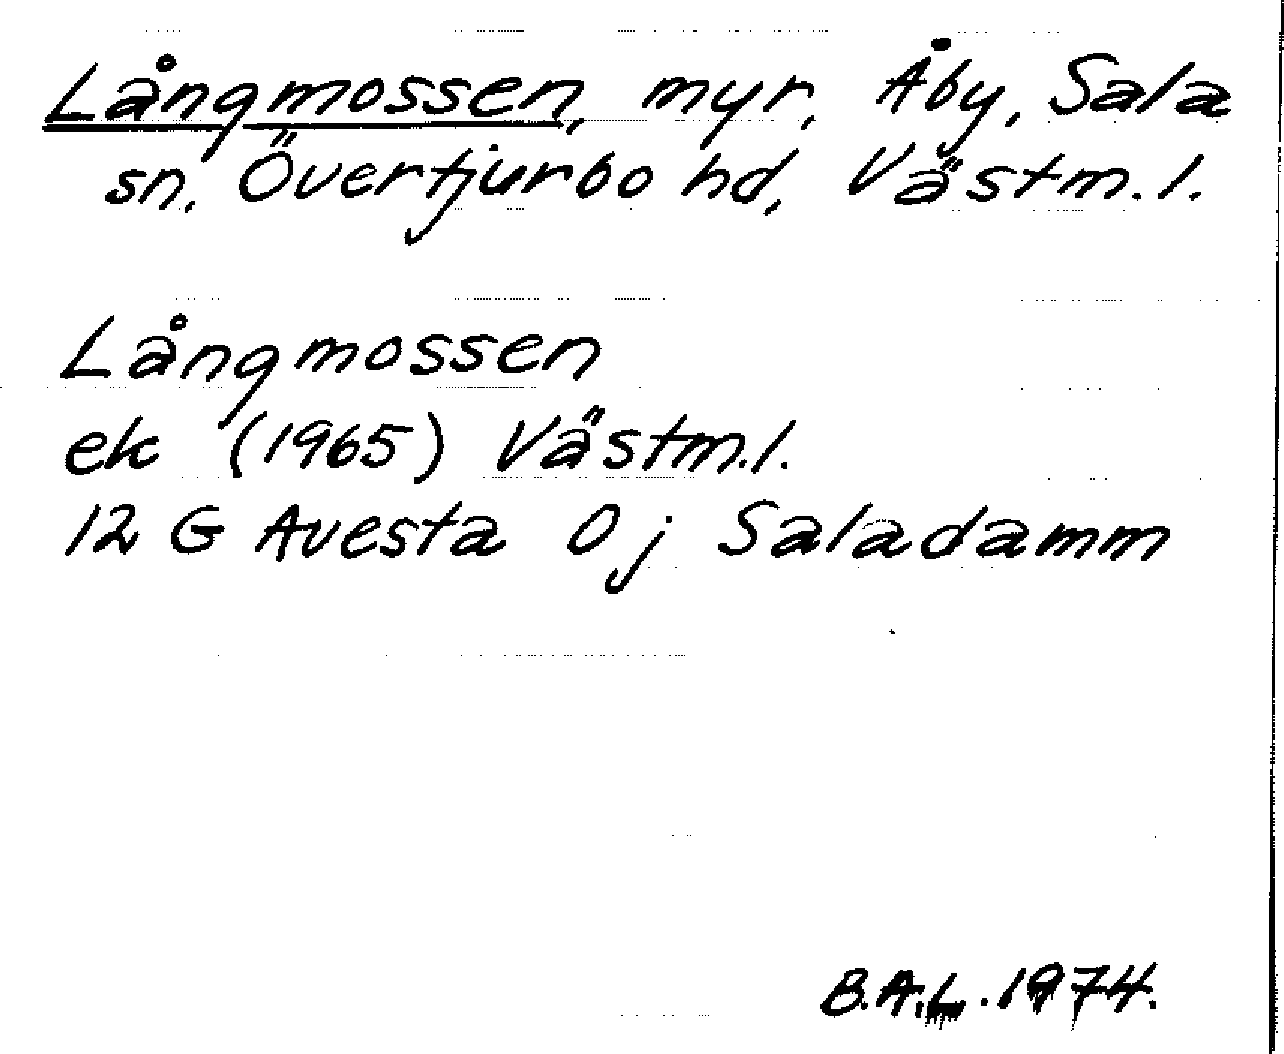 Långmossen, myr, Åby, Sala
sn, Övertjurbo hd, Västm.l.
Långmossen
ek (1965) Västm.l.
12 G Avesta 0 j Saladamm
B.A.L. 1974.